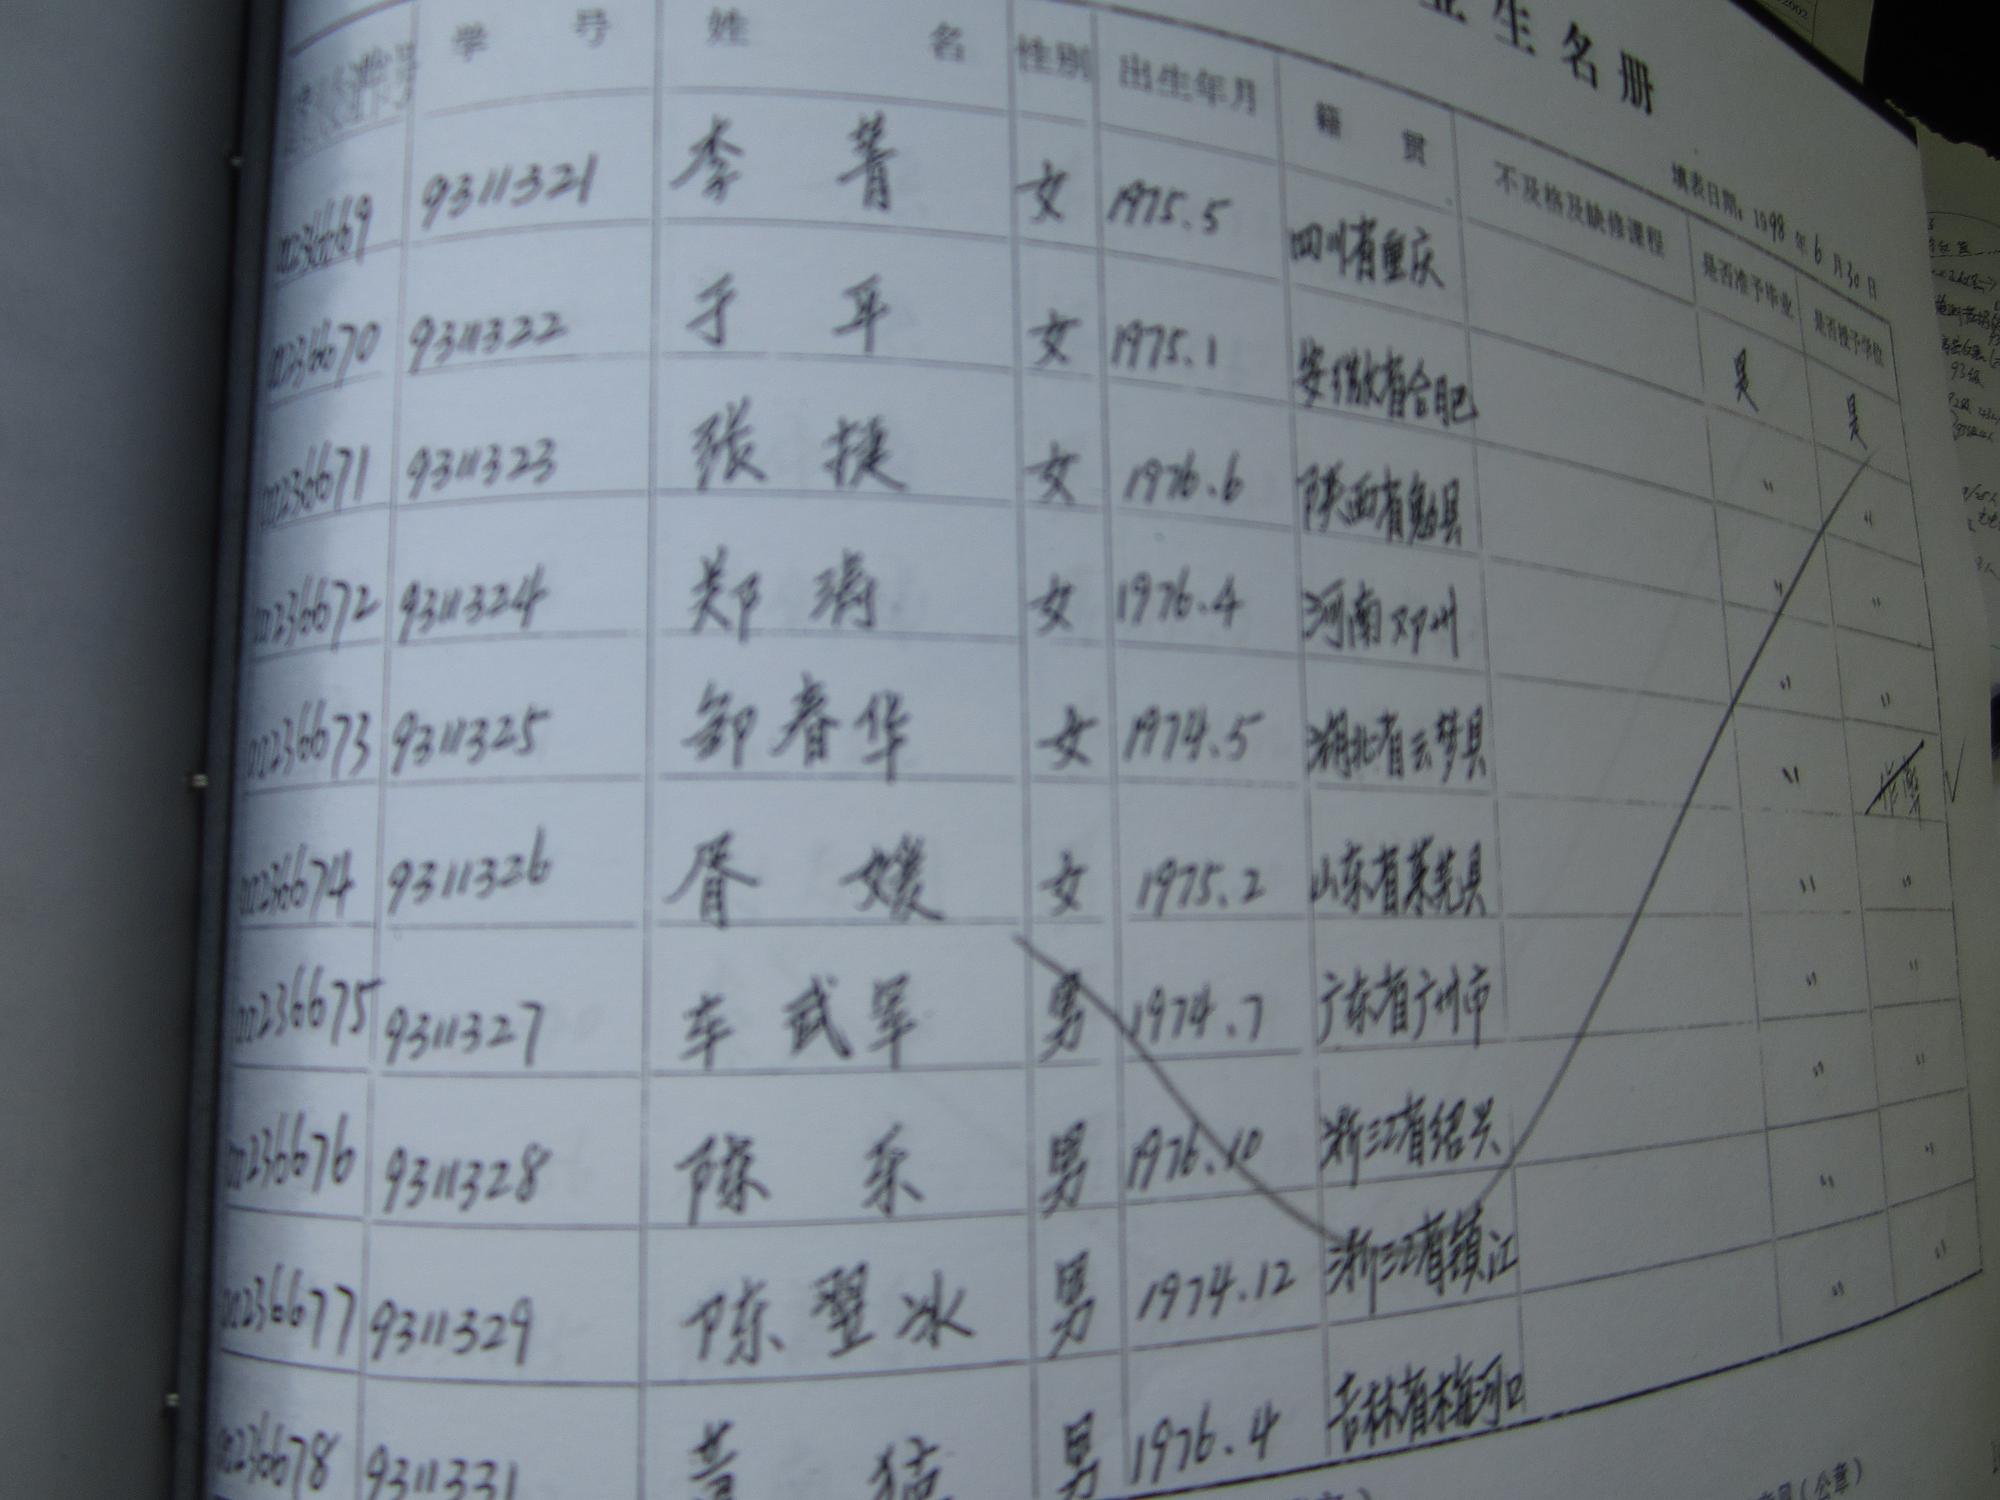 业生名册
填表日期：1998年6月30日
学号 姓名 性别 出生年月 籍贯 不及格及缺修课程 是否准予毕业 是否授予学位
00236669 9311321 李菁 女 1975.5 四川省重庆 是 是
00236670 9311322 于 女 1975.1 安徽省合肥 " "
00236671 9311323 张捷 女 1976.6 陕西省勉县 " "
00236672 9311324 郑 女 1976.4 河南邓州 " "
00236673 9311325 春华 女 1974.5 湖北省云梦县 " 作弊 √
00236674 9311326 胥媛 女 1975.2 山东省莱芜县 " "
00236675 9311327 车武军 男 1974.7 广东省广州市 " "
00236676 9311328 陈乐 男 1976.10 浙江省绍兴 " "
00236677 9311329 陈翌冰 男 1974.12 浙江省镇江 " "
00236678 9311331 黄猛 男 1976.4 吉林省梅河口 " "
（公章）